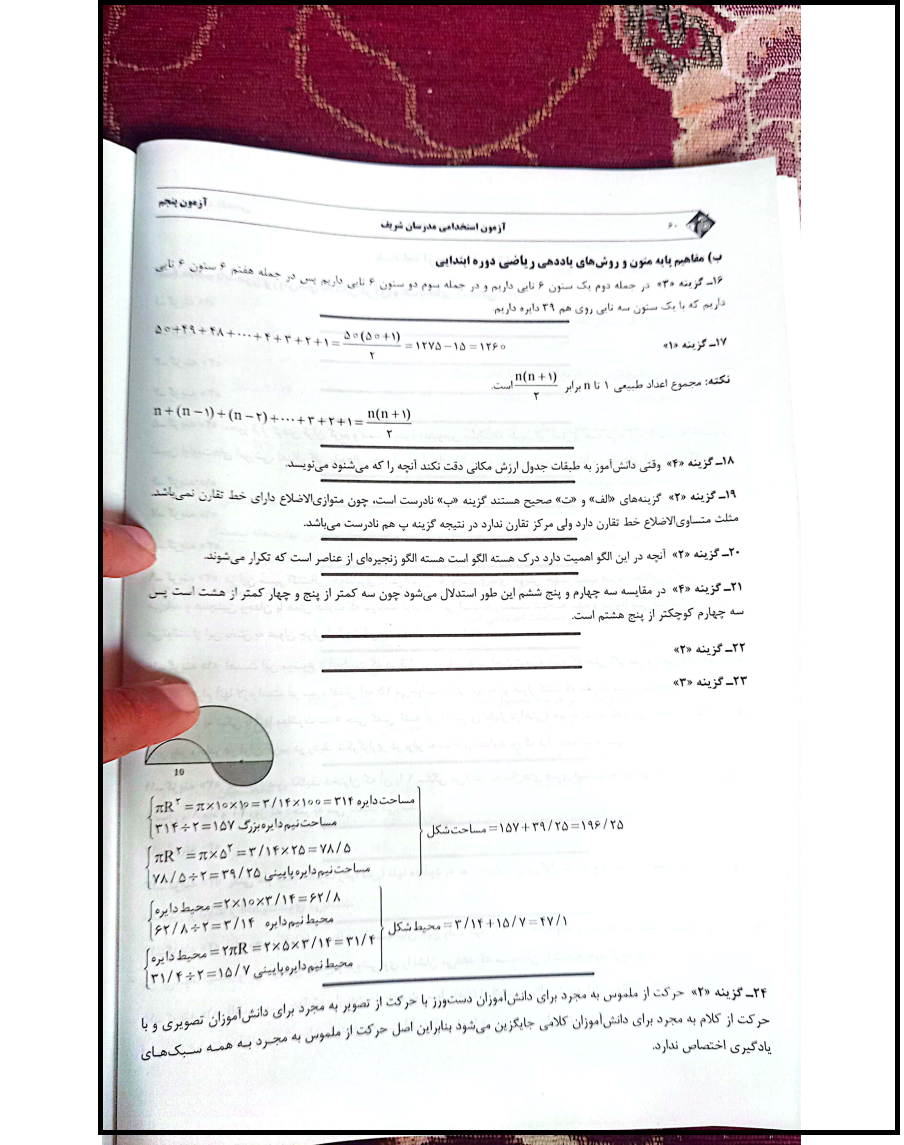 آزمون پنجم
آزمون استخدامی مدرسان شریف
۶۰
ب) مفاهیم پایه متون و روش‌های یاددهی ریاضی دوره ابتدایی
۱۶ـ گزینه «۳» در جمله دوم یک ستون ۶ تایی داریم و در جمله سوم دو ستون ۶ تایی داریم پس در جمله هفتم ۶ ستون ۶ تایی
داریم که با یک ستون سه تایی روی هم ۳۹ دایره داریم.
۱۷ـ گزینه «۱»
۵۰+۴۹+۴۸+⋯+۴+۳+۲+۱= ۵۰(۵۰+۱)/۲ =۱۲۷۵−۱۵=۱۲۶۰
نکته: مجموع اعداد طبیعی ۱ تا n برابر n(n+۱)/۲ است.
n+(n−۱)+(n−۲)+⋯+۳+۲+۱= n(n+۱)/۲
۱۸ـ گزینه «۴» وقتی دانش‌آموز به طبقات جدول ارزش مکانی دقت نکند آنچه را که می‌شنود می‌نویسد.
۱۹ـ گزینه «۲» گزینه‌های «الف» و «ت» صحیح هستند گزینه «ب» نادرست است، چون متوازی‌الاضلاع دارای خط تقارن نمی‌باشد.
مثلث متساوی‌الاضلاع خط تقارن دارد ولی مرکز تقارن ندارد در نتیجه گزینه پ هم نادرست می‌باشد.
۲۰ـ گزینه «۲» آنچه در این الگو اهمیت دارد درک هسته الگو است هسته الگو زنجیره‌ای از عناصر است که تکرار می‌شوند.
۲۱ـ گزینه «۴» در مقایسه سه چهارم و پنج ششم این طور استدلال می‌شود چون سه کمتر از پنج و چهار کمتر از هشت است پس
سه چهارم کوچکتر از پنج هشتم است.
۲۲ـ گزینه «۲»
۲۳ـ گزینه «۳»
10
مساحت دایره πR۲ =π×۱۰×۱۰=۳/۱۴×۱۰۰=۳۱۴
مساحت نیم دایره بزرگ ۳۱۴÷۲=۱۵۷
مساحت شکل =۱۵۷+۳۹/۲۵=۱۹۶/۲۵
πR۲ =π×۵۲ =۳/۱۴×۲۵=۷۸/۵
مساحت نیم دایره پایینی ۷۸/۵÷۲=۳۹/۲۵
محیط دایره =۲×۱۰×۳/۱۴=۶۲/۸
محیط نیم دایره ۶۲/۸÷۲=۳/۱۴
محیط شکل =۳/۱۴+۱۵/۷=۴۷/۱
محیط دایره =۲πR=۲×۵×۳/۱۴=۳۱/۴
محیط نیم دایره پایینی ۳۱/۴÷۲=۱۵/۷
۲۴ـ گزینه «۲» حرکت از ملموس به مجرد برای دانش‌آموزان دست‌ورز با حرکت از تصویر به مجرد برای دانش‌آموزان تصویری و با
حرکت از کلام به مجرد برای دانش‌آموزان کلامی جایگزین می‌شود بنابراین اصل حرکت از ملموس به مجرد به همه سبک‌های
یادگیری اختصاص ندارد.